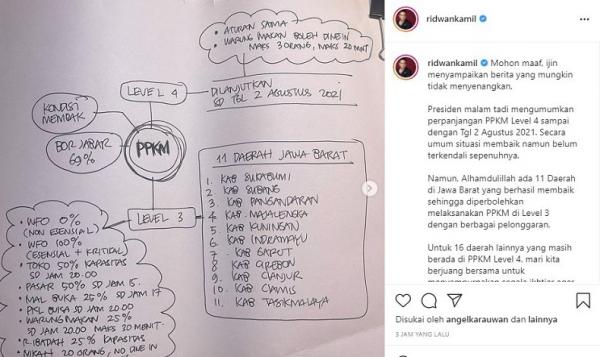 • ATURAN SAMA
• WARUNG MAKAN BOLEH DINE IN
MAKS 3 ORANG, MAKS 20 MNT
LEVEL 4
DILANJUTKAN
SD TGL 2 AGUSTUS 2021
KONDISI
MEMBAIK
BOR JABAR
69%
PPKM
LEVEL 3
11 DAERAH JAWA BARAT
1. KAB SUKABUMI
2. KAB SUBANG
3. KAB PANGANDARAN
4. KAB MAJALENGKA
5. KAB KUNINGAN
6. KAB INDRAMAYU
7. KAB GARUT
8. KAB CIREBON
9. KAB CIANJUR
10. KAB CIAMIS
11. KAB TASIKMALAYA
• WFO 0%
(NON ESENSIAL)
• WFO 100%
(ESENSIAL + KRITIKAL)
• TOKO 50% KAPASITAS
SD JAM 20.00
• PASAR 50% SD JAM 15.
• MAL BUKA 25% SD JAM 17
• PKL BUKA SD JAM 20.00
• WARUNG MAKAN 25%
SD JAM 20.00 MAKS 30 MENIT
• RIBADAH 25% KAPASITAS
• NIKAH 20 ORANG, NO DINE IN
ridwankamil
ridwankamil Mohon maaf, ijin
menyampaikan berita yang mungkin
tidak menyenangkan.
Presiden malam tadi mengumumkan
perpanjangan PPKM Level 4 sampai
dengan Tgl 2 Agustus 2021. Secara
umum situasi membaik namun belum
terkendali sepenuhnya.
Namun, Alhamdulillah ada 11 Daerah
di Jawa Barat yang berhasil membaik
sehingga diperbolehkan
melaksanakan PPKM di Level 3
dengan berbagai pelonggaran.
Untuk 16 daerah lainnya yang masih
berada di PPKM Level 4. mari kita
berjuang bersama untuk
menyempurnakan segala ikhtiar agar
Disukai oleh angelkarauwan dan lainnya
3 JAM YANG LALU